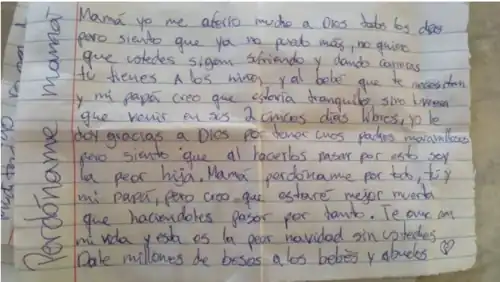 Mamá yo me aferro mucho a Dios todos los días
pero siento que ya no puedo más, no quiero
que ustedes sigan sufriendo y dando carreras
tu tienes A los niños y al bebé que te necesitan
y mi papá creo que estaría tranquilo sino tuviera
que venir en sus 2 cincos días libres, yo le
doy gracias a Dios por tener unos padres maravillosos
pero siento que al hacerlos pasar por esto soy
la peor hija. Mamá perdóname por todo, tú y
mi papá, pero creo que estaré mejor muerta
que haciendoles pasar por tanto. Te amo
mi vida y esta es la peor navidad sin ustedes
Dale millones de besos a los bebés y abuelos
Perdóname mamá